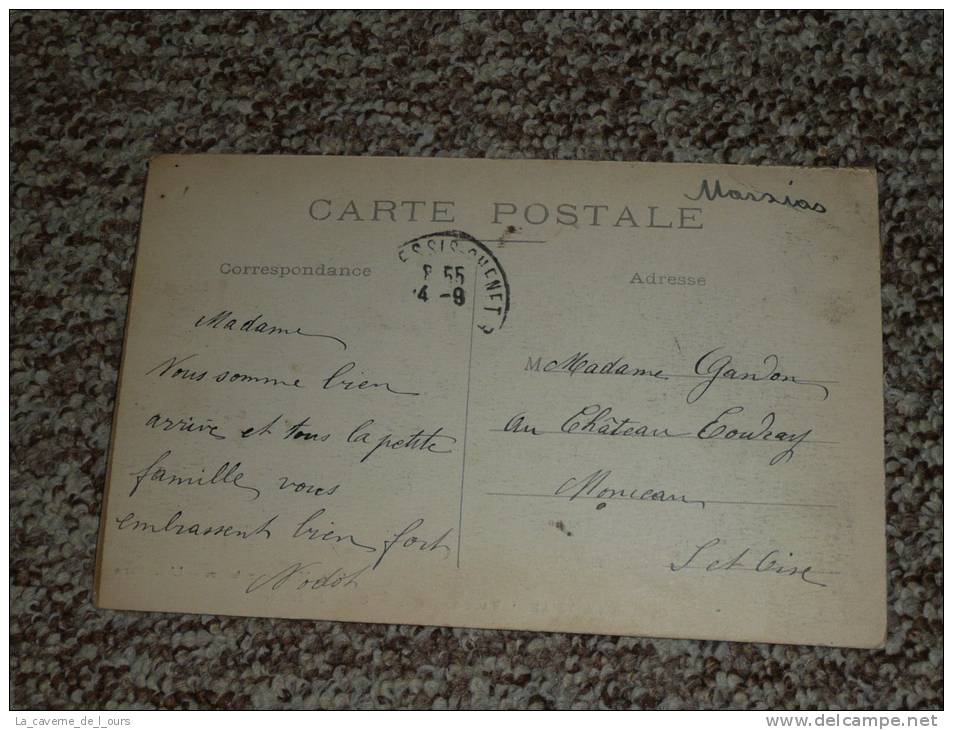 Marsias
CARTE POSTALE
ESSIS-CHENET
8 55
4 -9
Correspondance
Adresse
Madame
Nous somme bien
arrivé et tous la petite
famille vous
embrassent bien fort
Nodot
M Madame Gandon
au Château Coudray
Monceau
S et Oise
La_caverne_de_l_ours
www.delcampe.net